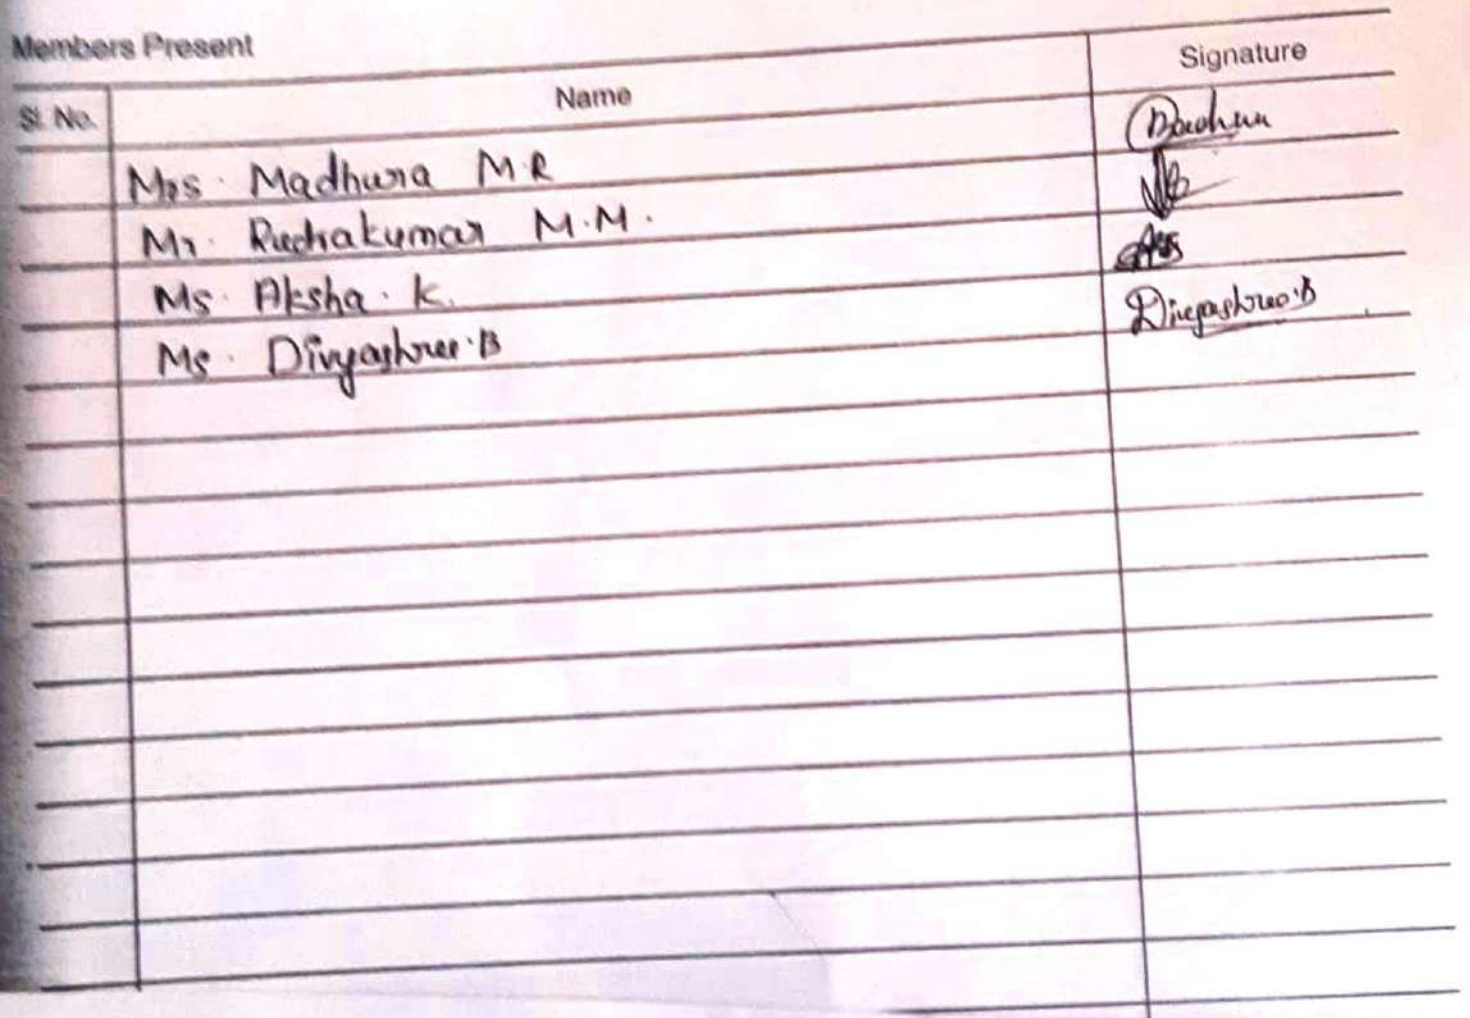 Members Present
Sl. No. Name Signature
Mrs. Madhura M.R
Mr. Rudrakumar M.M.
Ms. Aksha. K.
Ms. Divyashree.B Divyashree.B